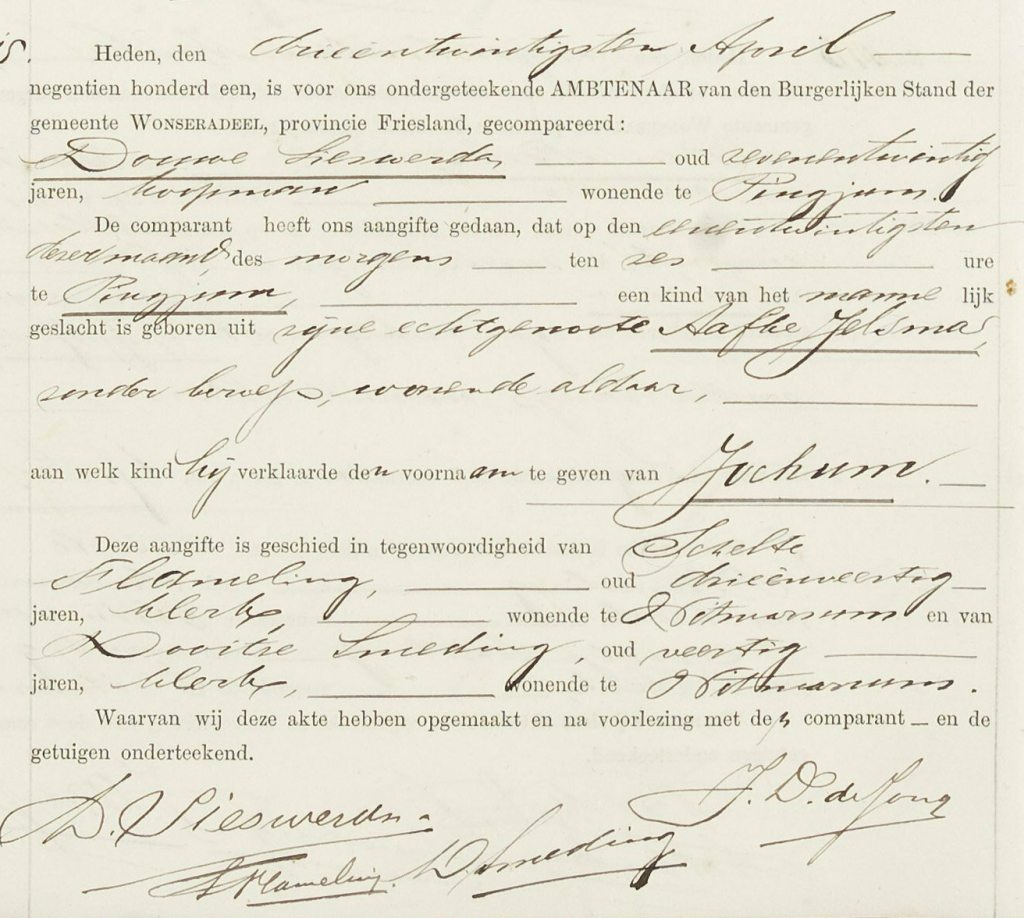 Heden, den drieëntwintigsten April
negentien honderd een, is voor ons ondergeteekende AMBTENAAR van den Burgerlijken Stand der
gemeente WONSERADEEL, provincie Friesland, gecompareerd:
Douwe Sieswerda, oud zevenentwintig
jaren, koopman wonende te Pingjum.
De comparant heeft ons aangifte gedaan, dat op den eenentwintigsten
dezer maand, des morgens ten zes ure
te Pingjum, een kind van het manne lijk
geslacht is geboren uit zijne echtgenoote Aafke Jelsma,
zonder beroep, wonende aldaar,
aan welk kind hij verklaarde den voornaam te geven van Jochum.
Deze aangifte is geschied in tegenwoordigheid van Schelte
Flameling, oud drieënveertig
jaren, klerk, wonende te Witmarsum en van
Dooitse Smeding, oud veertig
jaren, klerk, wonende te Witmarsum.
Waarvan wij deze akte hebben opgemaakt en na voorlezing met den comparant en de
getuigen onderteekend.
D. Sieswerda. J. D. de Jong
S Flameling. D. Smeding